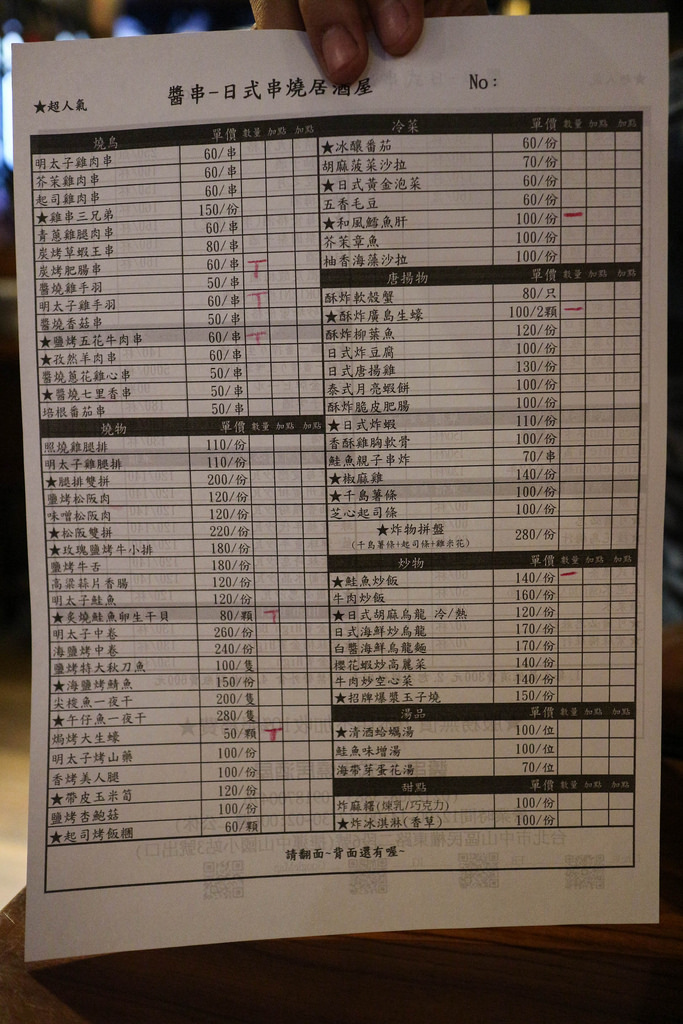 醬串-日式串燒居酒屋
No:
★超人氣
燒鳥 單價 數量 加點 加點
明太子雞肉串 60/串
芥茉雞肉串 60/串
起司雞肉串 60/串
★雞串三兄弟 150/份
青蔥雞腿肉串 60/串
炭烤草蝦王串 80/串
炭烤肥腸串 60/串
醬燒雞手羽 50/串
明太子雞手羽 60/串
醬燒香菇串 50/串
★鹽烤五花牛肉串 60/串
★孜然羊肉串 60/串
醬燒蔥花雞心串 50/串
★醬燒七里香串 50/串
培根番茄串 50/串
燒物 單價 數量 加點 加點
照燒雞腿排 110/份
明太子雞腿排 110/份
★腿排雙拼 200/份
鹽烤松阪肉 120/份
味噌松阪肉 120/份
★松阪雙拼 220/份
★玫瑰鹽烤牛小排 180/份
鹽烤牛舌 180/份
高粱蒜片香腸 120/份
明太子鮭魚 120/份
★炙燒鮭魚卵生干貝 80/顆
明太子中卷 260/份
海鹽烤中卷 240/份
鹽烤特大秋刀魚 100/隻
★海鹽烤鯖魚 150/份
尖梭魚一夜干 200/隻
★午仔魚一夜干 280/隻
焗烤大生蠔 50/顆
明太子烤山藥 100/份
香烤美人腿 100/份
★帶皮玉米筍 120/份
鹽烤杏鮑菇 100/份
★起司烤飯糰 60/顆
冷菜 單價 數量 加點 加點
★冰釀番茄 60/份
胡麻菠菜沙拉 70/份
★日式黃金泡菜 60/份
五香毛豆 60/份
★和風鱈魚肝 100/份
芥茉章魚 100/份
柚香海藻沙拉 100/份
唐揚物 單價 數量 加點 加點
酥炸軟殼蟹 80/只
★酥炸廣島生蠔 100/2顆
酥炸柳葉魚 120/份
日式炸豆腐 100/份
日式唐揚雞 130/份
泰式月亮蝦餅 100/份
酥炸脆皮肥腸 100/份
★日式炸蝦 110/份
香酥雞胸軟骨 100/份
鮭魚親子串炸 70/串
★椒麻雞 140/份
★千島薯條 100/份
芝心起司條 100/份
★炸物拼盤 280/份
(千島薯條+起司條+雞米花)
炒物 單價 數量 加點 加點
★鮭魚炒飯 140/份
牛肉炒飯 160/份
★日式胡麻烏龍 冷/熱 120/份
日式海鮮炒烏龍 170/份
白醬海鮮烏龍麵 170/份
櫻花蝦炒高麗菜 140/份
牛肉炒空心菜 140/份
★招牌爆漿玉子燒 150/份
湯品 單價 數量 加點 加點
★清酒蛤蠣湯 100/位
鮭魚味增湯 100/位
海帶芽蛋花湯 70/位
甜點 單價 數量 加點 加點
炸麻糬(煉乳/巧克力) 100/份
★炸冰淇淋(香草) 100/份
請翻面~背面還有喔~